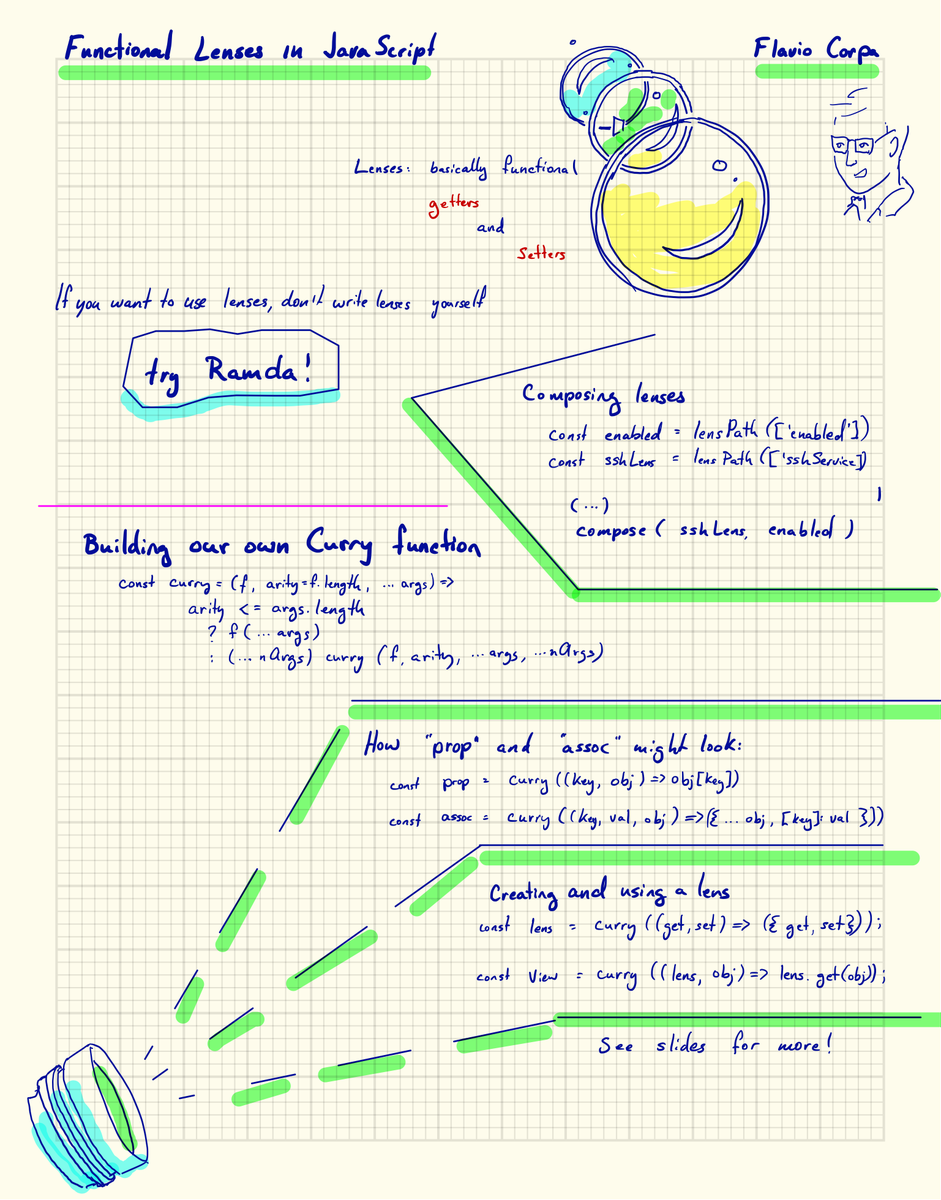 Functional Lenses in JavaScript
Flavio Corpa
Lenses: basically functional
getters
and
Setters
If you want to use lenses, don't write lenses yourself
try Ramda!
Composing lenses
const enabled = lensPath(['enabled'])
const sshLens = lensPath(['sshService])
(...)
compose( sshLens, enabled )
Building our own Curry function
const curry = (f, arity=f.length, ... args) =>
arity <= args.length
? f(... args)
: (... nArgs) curry (f, arity, ... args, ...nArgs)
How "prop" and "assoc" might look:
const prop = curry((key, obj) => obj[key])
const assoc = curry((key, val, obj) =>({ ... obj, [key]: val }))
Creating and using a lens
const lens = curry((get, set) => ({ get, set}));
const view = curry((lens, obj) => lens.get(obj));
See slides for more!